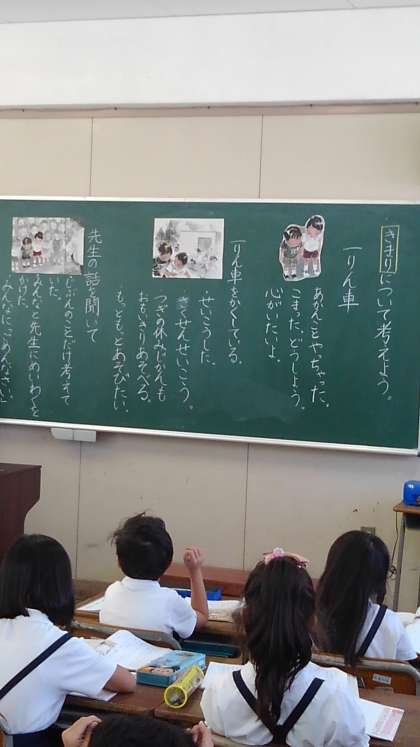 きまりについて考えよう。
一りん車
あかんことやっちゃった。
こまった、どうしよう。
心がいたいよ。
一りん車をかくしている。
せいこうした。
さくせんせいこう。
つぎの休けいかんも
おもいきりあそべる。
もっともっとあそびたい。
先生の話を聞いて
じぶんのことだけ考えて
いた。
みんなと先生にめいわくを
かけた。
みんなに、ごめんなさい。